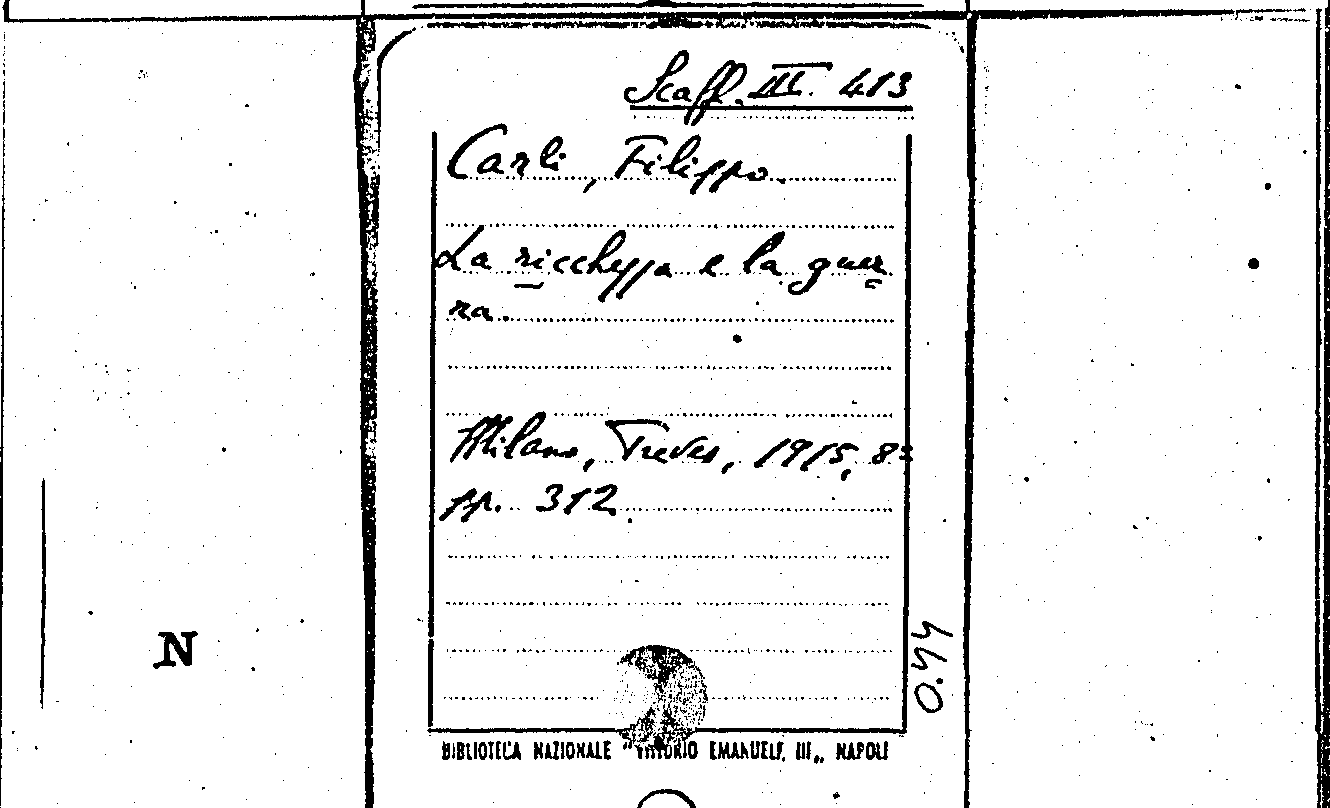 Scaff. III. 413
Carli, Filippo.
La ricchezza e la guer
ra.
Milano, Treves, 1915, 8º
pp. 312
0.44
N
BIBLIOTECA NAZIONALE "VITTORIO EMANUELE III„ NAPOLI